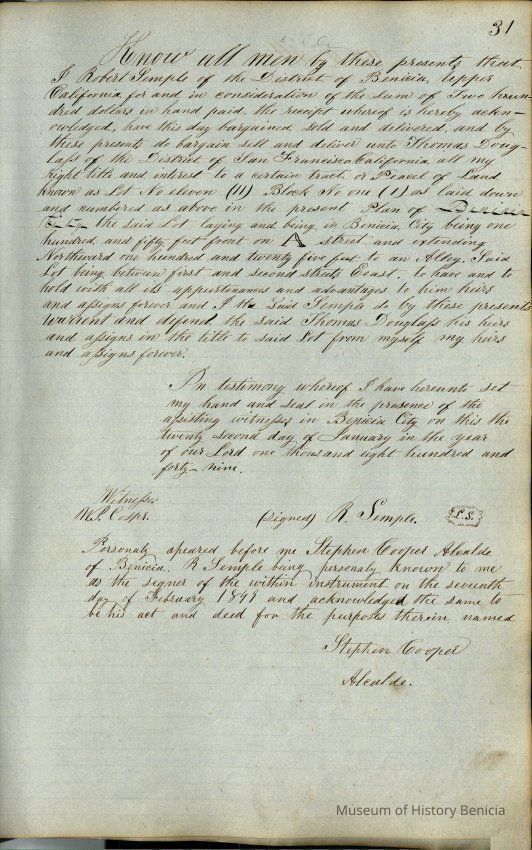 31
Know all men by these presents that
I Robert Semple of the District of Benicia, Upper
California, for and in consideration of the sum of Two hun-
dred dollars in hand paid, the receipt whereof is hereby ackn-
owledged, have this day bargained sold and delivered, and by
these presents do bargain sell and deliver unto Thomas Doug-
lass of the District of San Francisco California, all my
right title and interest to a certain tract or Peacel of Land
known as Lot No eleven (11) Block No one (1) as laid down
and numbered as above in the present Plan of
the said Lot laying and being in Benicia City being one
hundred and fifty feet front on A street and extending
Northward one hundred and twenty five feet to an Alley, Said
Lot being between first and second streets East. to have and to
hold with all its appurtenances and advantages to him heirs
and assigns forever and I the Said Semple do by these presents
warrent and defend the said Thomas Douglass his heirs
and assigns in the title to said Lot from myself my heirs
and assigns forever.
In testimony whereof I have hereunto set
my hand and seal in the presence of the
assisting witnesses in Benicia City on this the
twenty second day of January in the year
of our Lord one thousand eight hundred and
forty-nine.
Witnesses
(signed) R. Semple. L.S.
Personaly apeared before me Stephen Cooper Alcalde
of Benicia. R Semple being personaly known to me
as the signer of the within instrument on the seventh
day of February 1849 and acknowledged the same to
be his act and deed for the purposes therein named
Stephen Cooper
Alcalde.
Museum of History Benicia